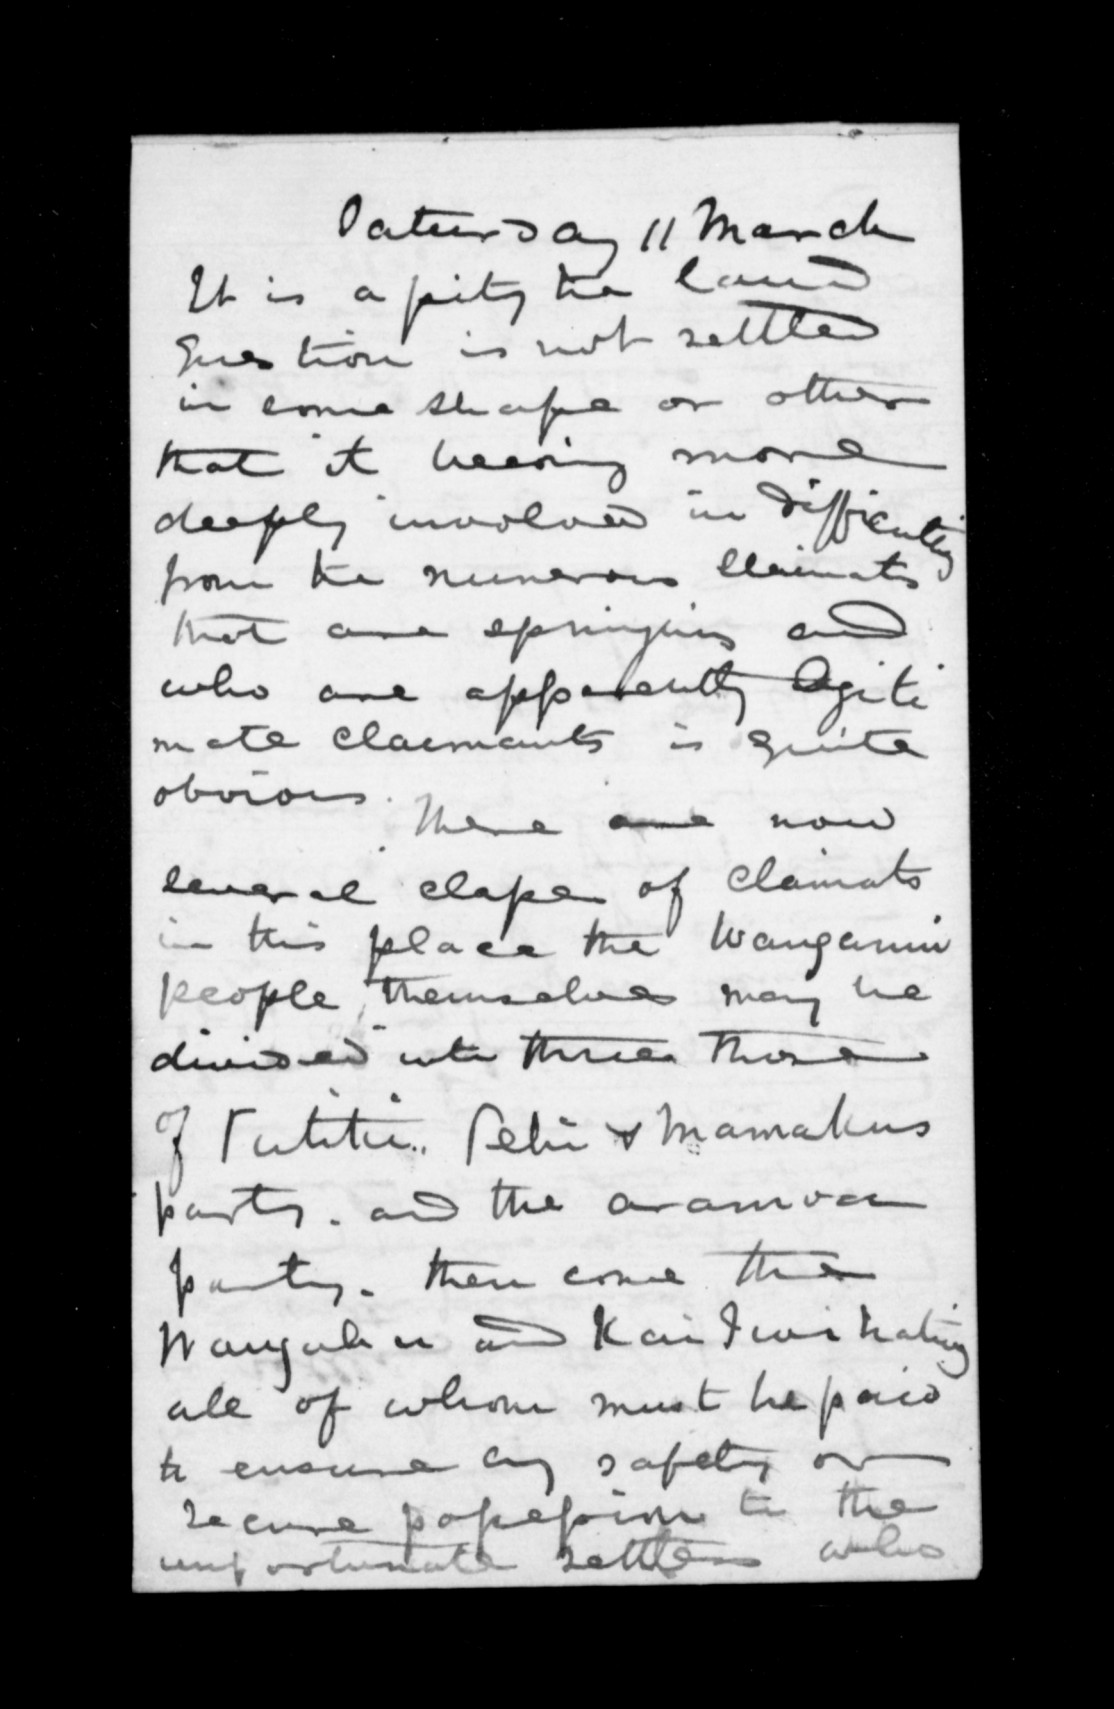 Saturday 11 March
It is a pity the land
Question is not settled
in some shape or other
that it being more
deeply involved in difficulty
from the numerous Claimats
that are springing and
who are apparently legiti
mate claimants is quite
obvious.
There are now
several classes of claimats
in this place the Wanganui
people themselves may be
divided into three those
of Tutitu.. Pehi & Mamakus
party. and the aramoa
party. then come the
and Kai Iwi natives
all of whom must be paid
to ensure any safety or
secure possession to the
unfortunate settlers who